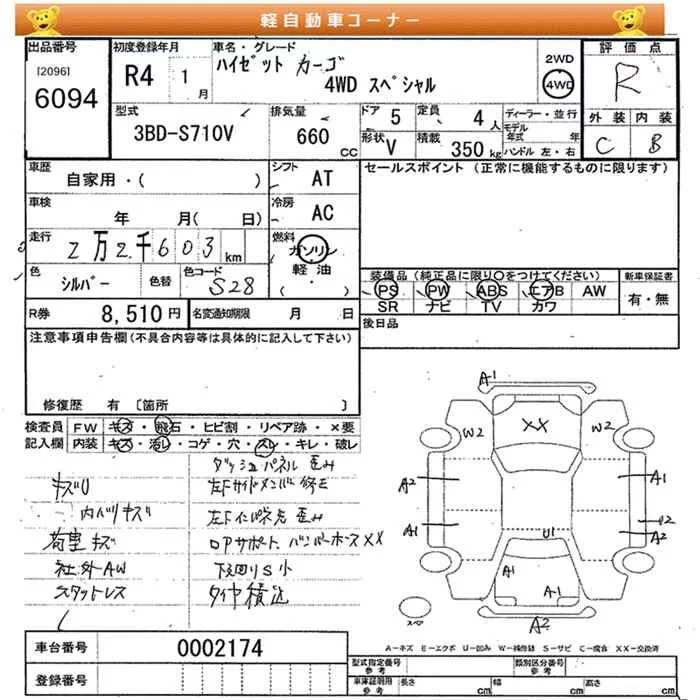 軽自動車コーナー
出品番号 [2096] 6094
初度登録年月 R4 1月
車名・グレード ハイゼット カーゴ 4WD スペシャル
2WD 4WD
評価点 R
外装 内装 C B
型式 3BD-S710V
排気量 660 CC
ドア 5 定員 4人
形状 V 積載 350kg
ディーラー・並行
モデル年式 年
ハンドル 左・右
車歴 自家用・( )
シフト AT
セールスポイント (正常に機能するものに限ります)
車検 年 月( 日)
冷房 AC
走行 2万2千603km
燃料 ガソリン 軽油 ( ・ )
色 シルバー 色替 色コード S28
装備品 (純正品に限り〇をつけてください) 新車保証書
PS PW ABS エアB AW 有・無
SR ナビ TV カワ
R券 8,510円 名変通知期限 月 日
後日品
注意事項申告欄(不具合内容等は具体的に記入して下さい)
修復歴 有 〔箇所 〕
検査員 FW キズ・飛石・ヒビ割・リペア跡・×要
記入欄 内装 キズ・汚レ・コゲ・穴・スレ・キレ・破レ
ダッシュパネル 歪み
キズU 左Fサイドメンバー修正
内バリキズ 左Fインパネ先 歪み
荷室キズ ロアサポート、バンパーホース XX
社外AW 下廻りS小
スタットレス タイヤ積込
A1
W2 XX W2
A2 A1
A1 U1 U2
A2
A1 A1
スペ A2
A-キズ E-エクボ U-凹み W-補修跡 S-サビ C-腐食 XX-交換済
車台番号 0002174
登録番号
型式指定番号 参考 類別区分番号 参考
車庫証明用 参考 長さ cm 幅 cm 高さ cm